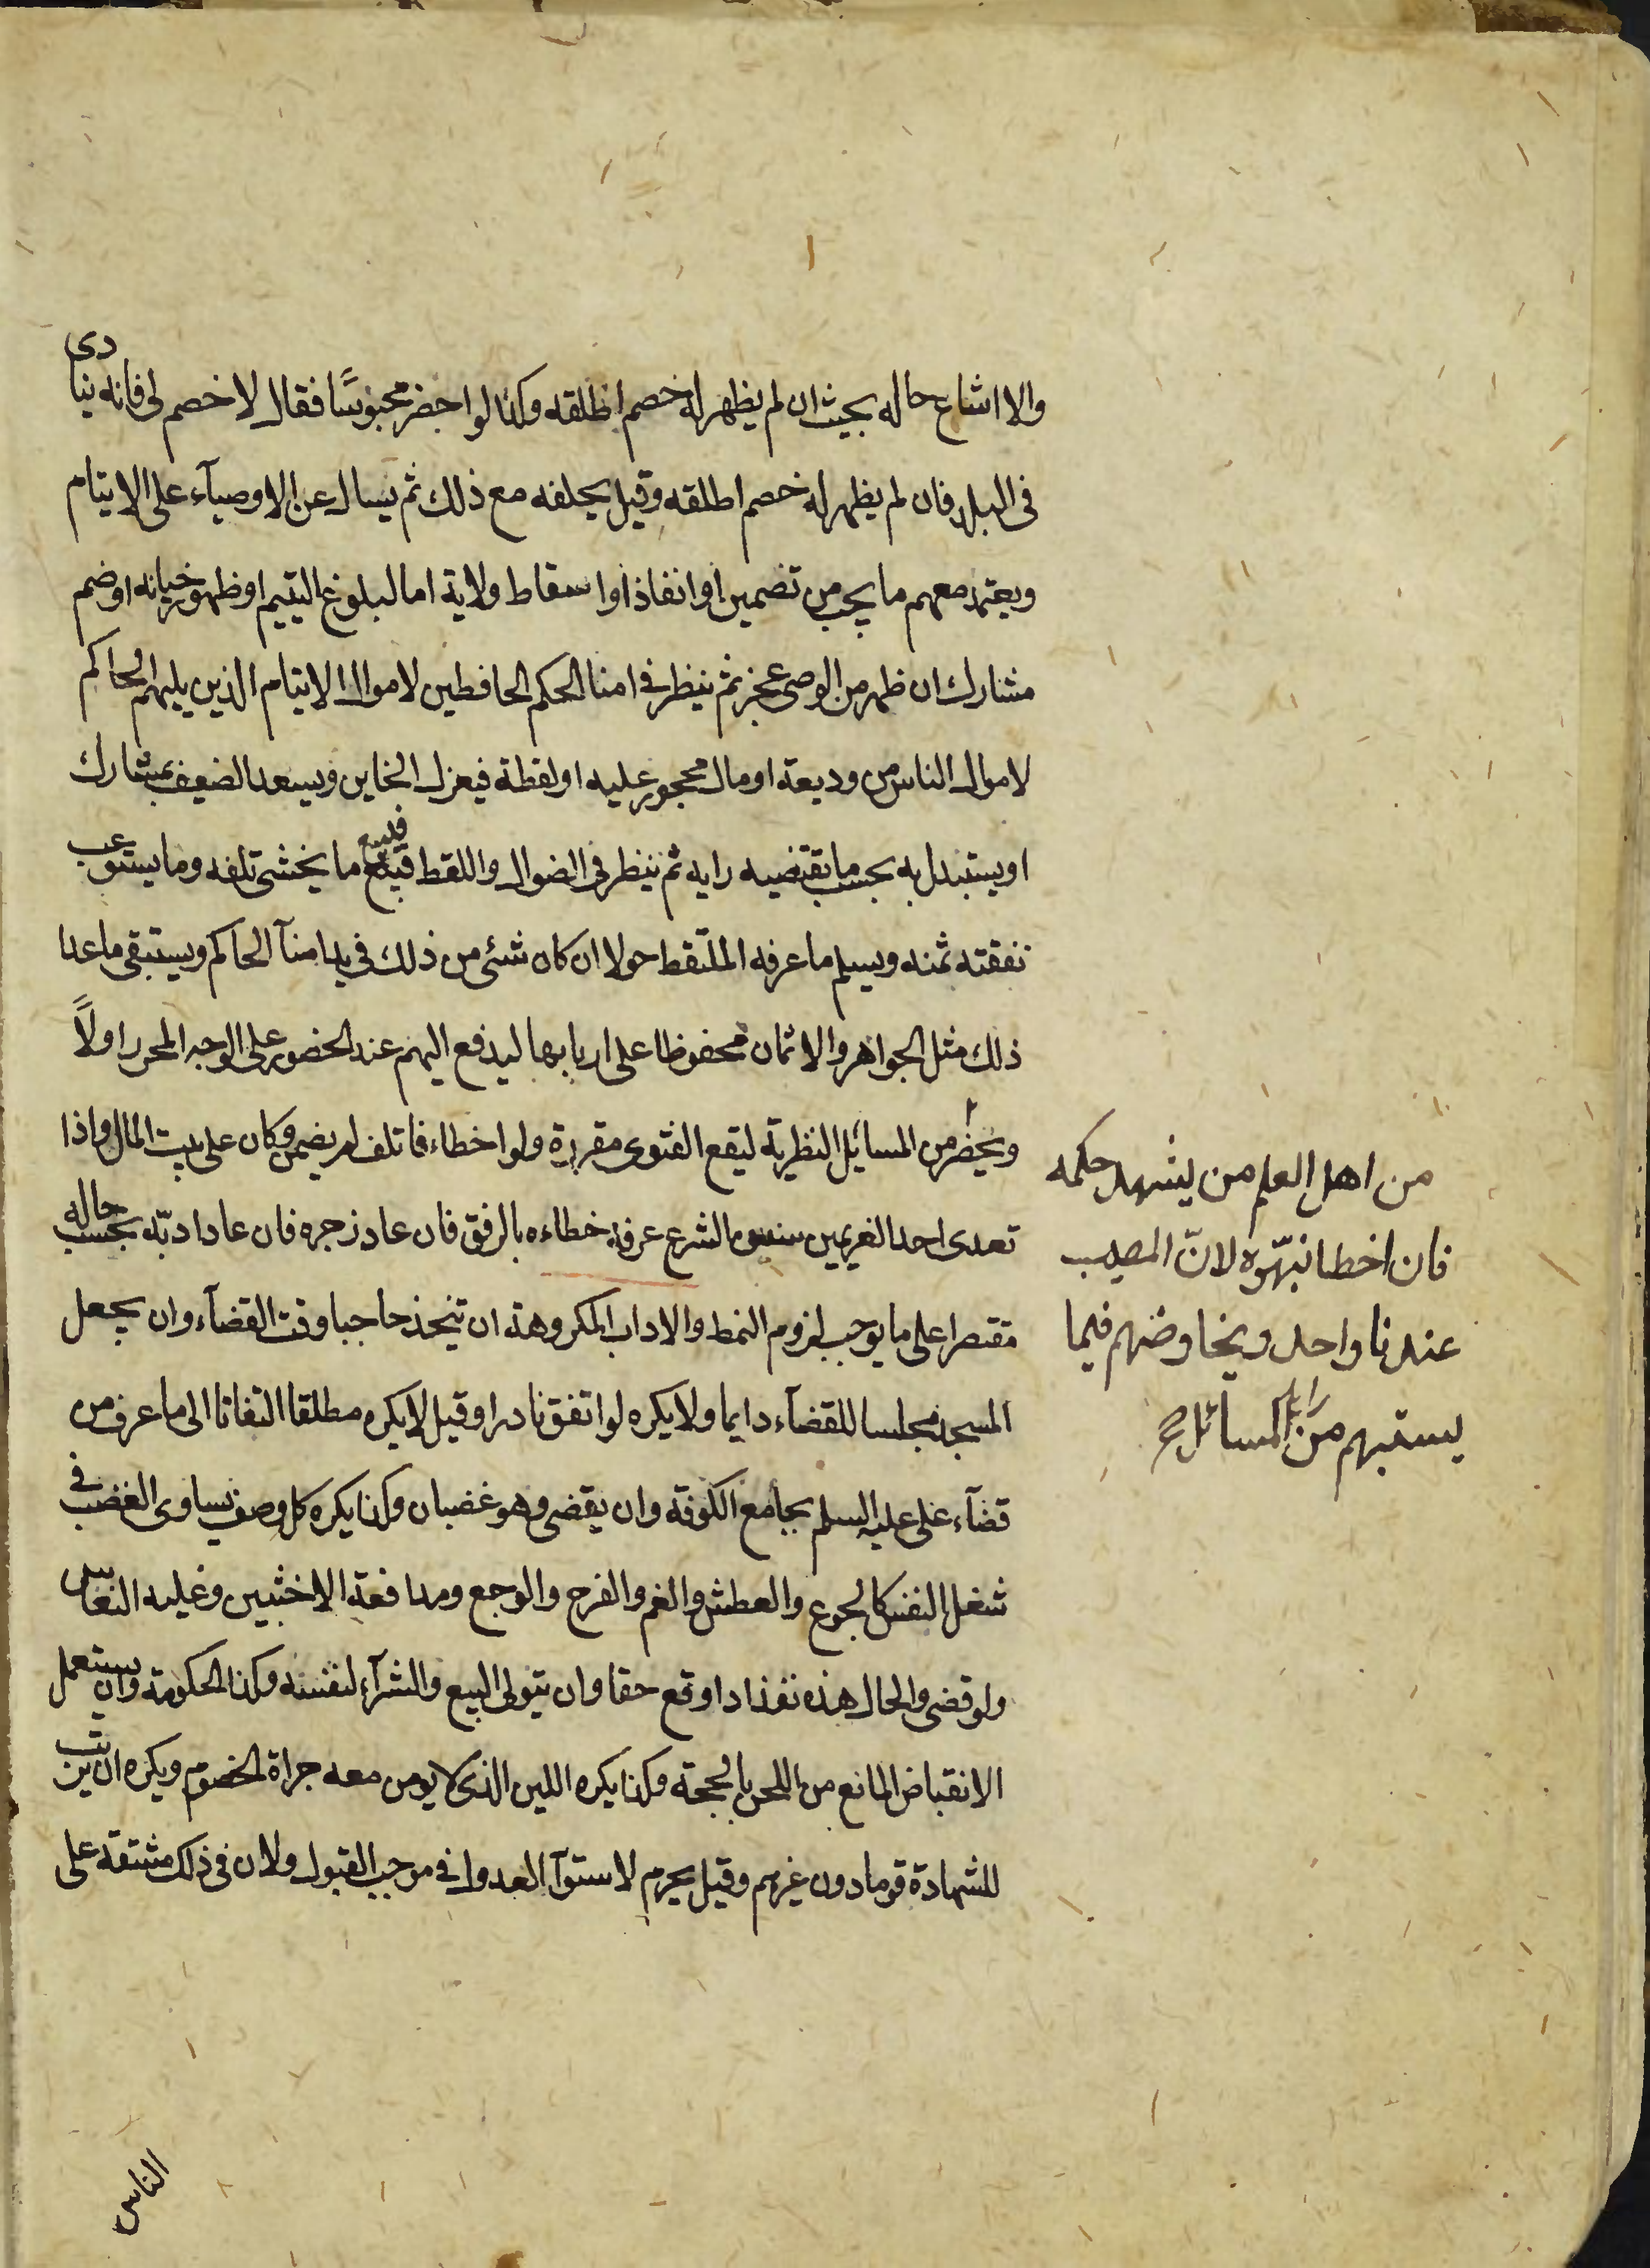 والا اشاع حاله بحيث ان لم يظهر له خصم اطلقه وكذا لو احضر محبوسًا فقال لا خصم لى فانه ينادى
فى البلد فان لم يظهر له خصم اطلقه وقيل يحلفه مع ذلك ثم يسال عن الاوصيآء على الايتام
ويعتمد معهم ما يجب من تضمين او انفاذ او اسقاط ولاية اما لبلوغ اليتيم او ظهور خيانه او ضم
مشارك ان ظهر من الوصى عجز ثم ينظر فى امنا الحكم الحافظين لاموال الايتام الذين يليهم الحاكم
لاموال الناس من وديعة او مال محجور عليه او لقطة فيعزل الخاين ويسعد الضعيف بمشارك
او يستبدل به بحسب ما يقتضيه رايه ثم ينظر فى الضوال واللقط فيبيع ما يخشى تلفه وما يستوعب
نفقته ثمنه ويسلم ما عرفه الملتقط حولا ان كان شئ من ذلك فى يد امنآ الحاكم ويستبقى ما عدا
ذلك مثل الجواهر والاثمان محفوظا على اربابها ليدفع اليهم عند الحضور على الوجه المحرر اولاً
ويحضر من المسائل النظرية ليقع الفتوى مقررة ولو اخطاء فاتلف لم يضمن وكان على بيت المال واذا
تعدى احد الغريمين سنن الشرع عرفه خطاءه بالرفق فان عاد زجره فان عاد ادبّه بحسب حاله
مقتصرا على ما يوجب لزوم النمط والاداب المكروهة ان يتخذ حاجبا وقت القضآء وان يجعل
المسجد مجلسا للقضآء دايما ولا يكره لو اتفق نادرا وقيل لا يكره مطلقا التفاتا الى ما عرف من
قضآء على عليه السلم بجامع الكوفة وان يقضى وهو غضبان وكذا يكره كل وصف يساوى الغضب فى
شغل النفس كالجوع والعطش والغم والفرح والوجع ومدافعة الاخبثين وغلبه النعاس
ولو قضى والحال هذه نفذ اذا وقع حقا وان يتولى البيع والشرآء لنفسه وكذا الحكومة وان يستعمل
الانقباض المانع من اللحن بالحجة وكذا يكره اللين الذى لا يومن معه جراة الخصوم ويكره ان يرتب
للشهادة قوما دون غيرهم وقيل يحرم لاستوآ العدول فى موجب القبول ولان فى ذلك مشقة على
من اهل العلم من يشهد حكمه
فان اخطا نبّهوه لانّ المصيب
عندنا واحد ويخاوضهم فيما
يستبهم من المسائل
الناس